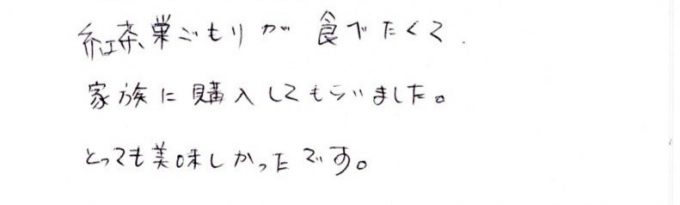 紅茶、巣ごもりが食べたくて
家族に購入してもらいました。
とっても美味しかったです。